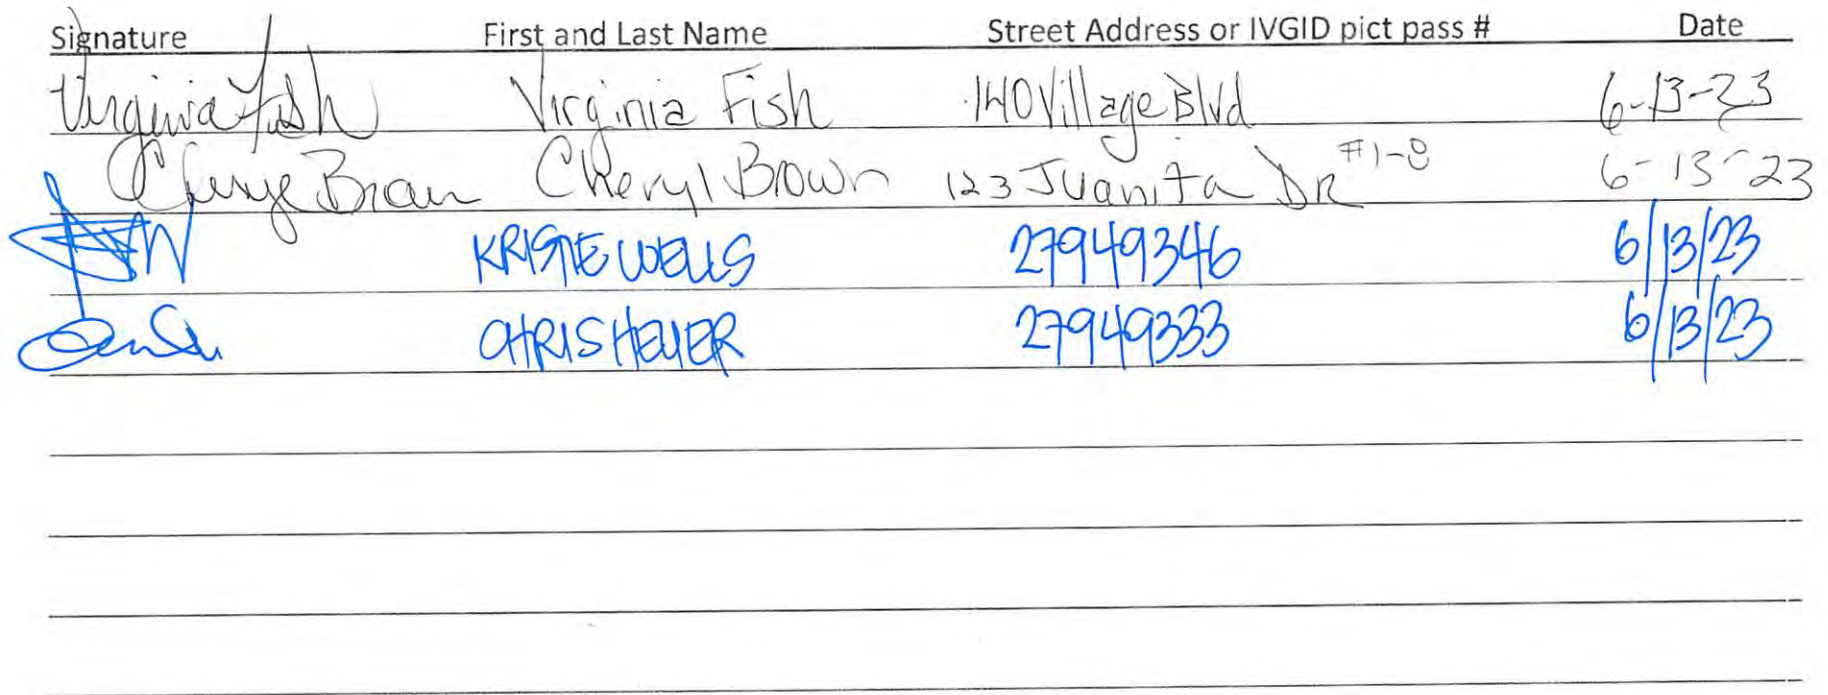 Signature First and Last Name Street Address or IVGID pict pass # Date
Virginia Fish Virginia Fish 140 Village Blvd 6-13-23
Brown Cheryl Brown 123 Juanita DR #1-8 6-13-23
KRISTIE WELLS 27949346 6/13/23
CHRIS HEYER 27949333 6/13/23